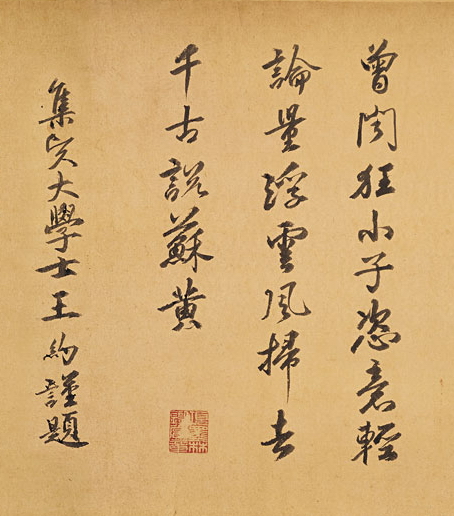 曾闻狂小子恣意輕
論量浮雲風掃去
千古說蘇黃
集賢大學士王約謹題